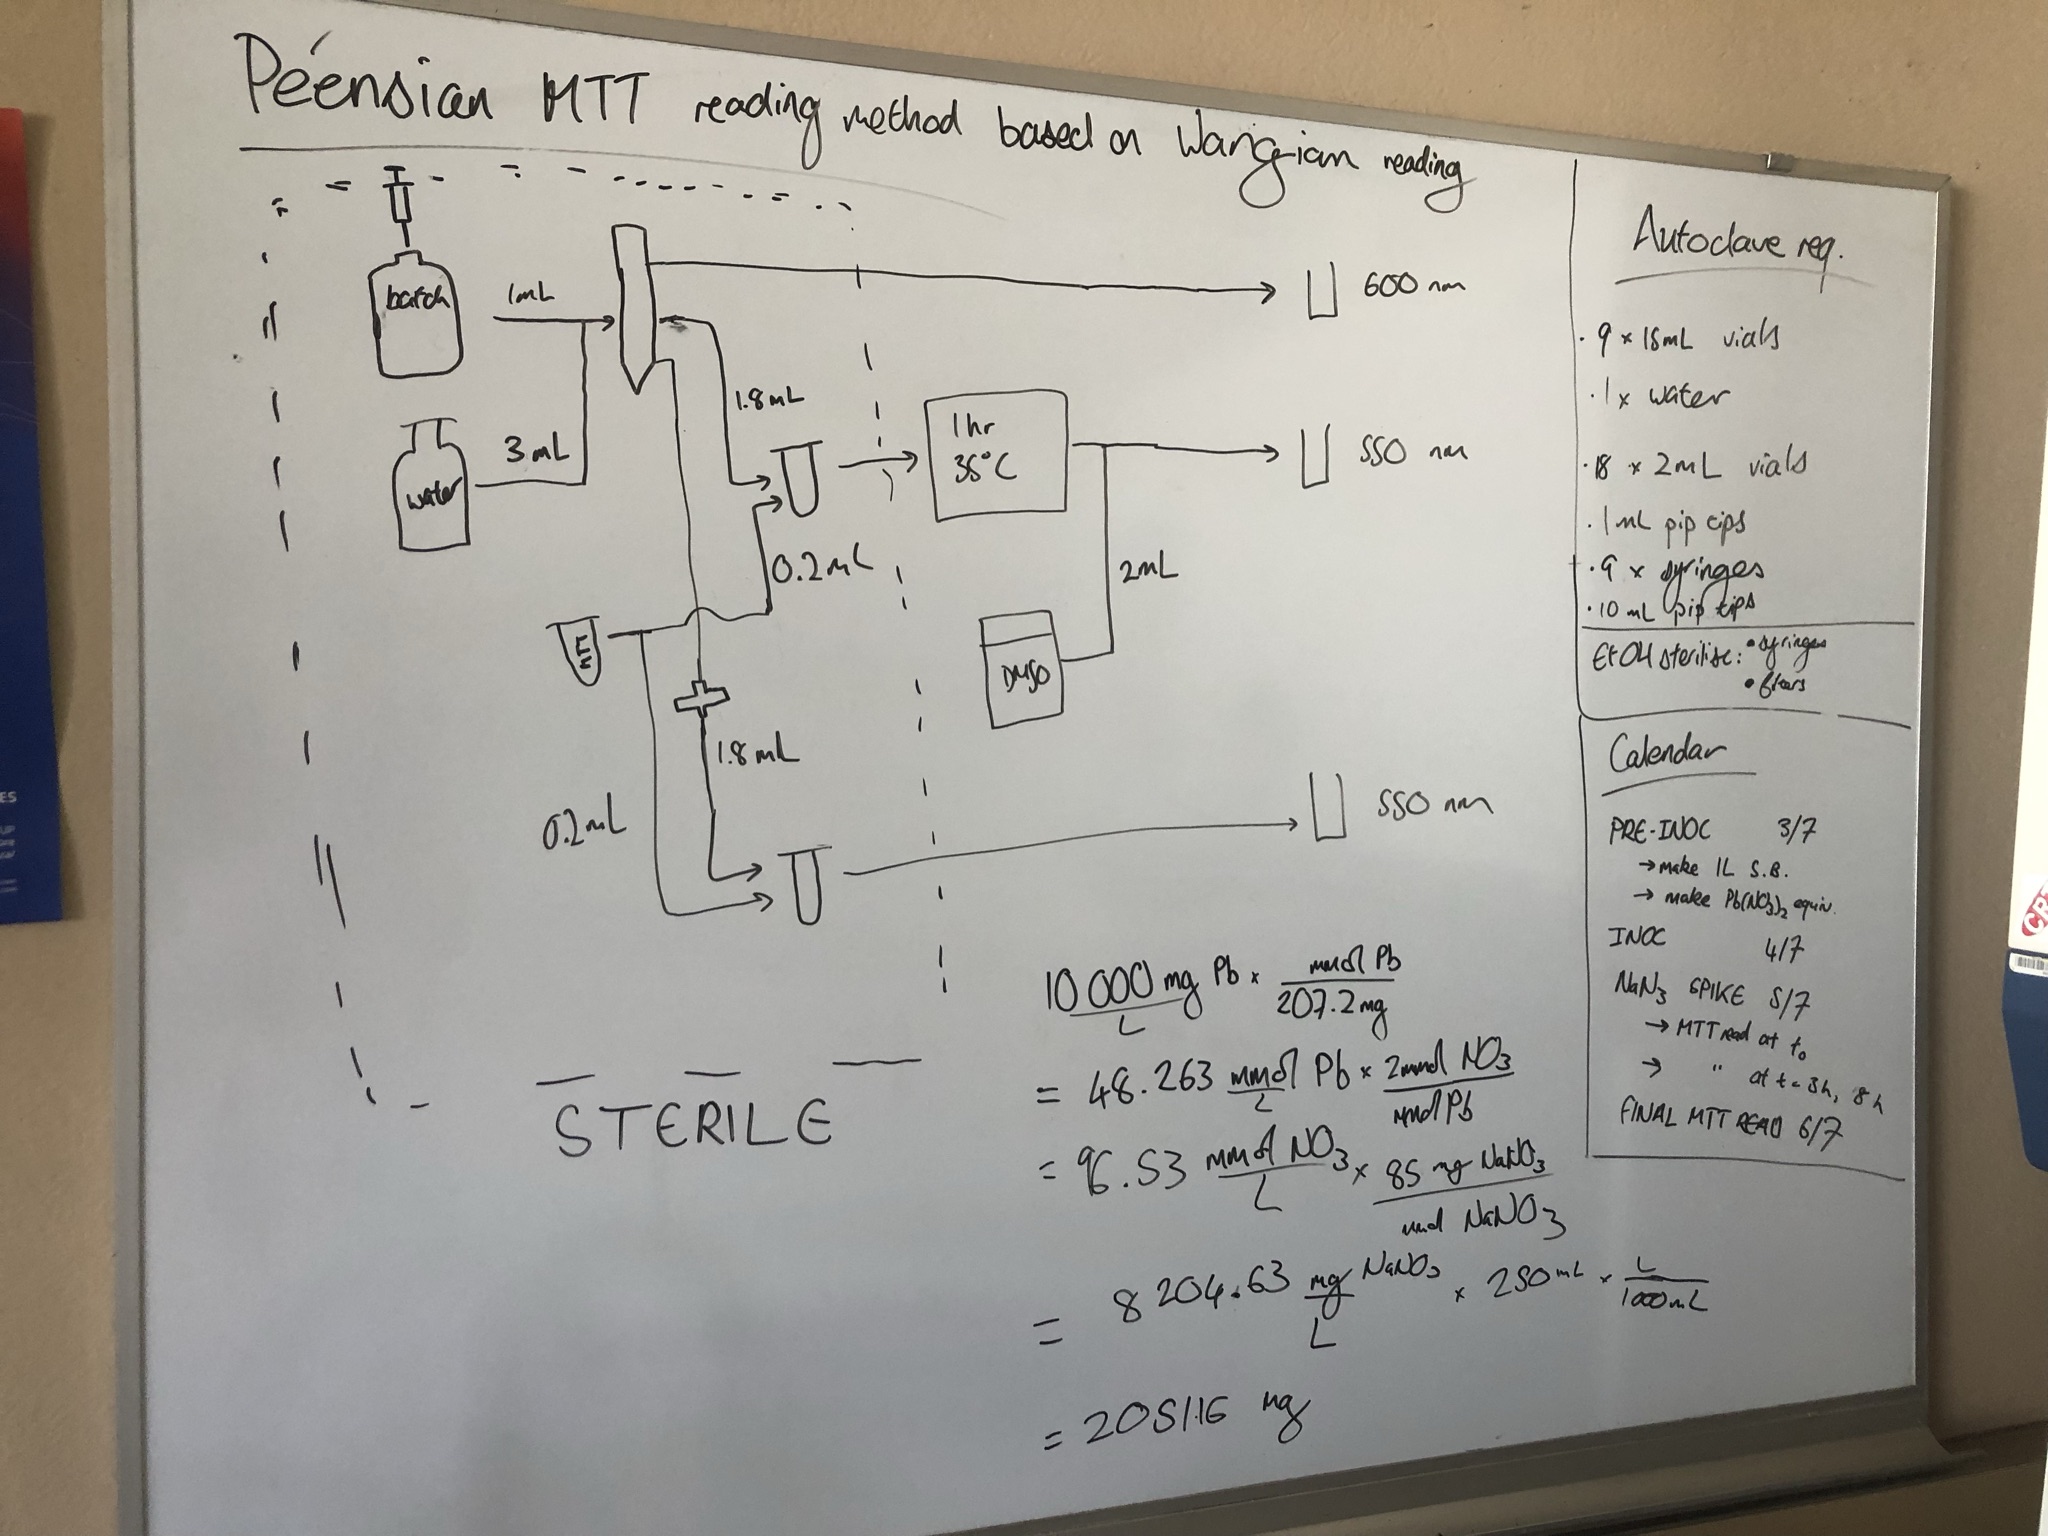 Péensian MTT reading method based on Wangian reading
batch
1mL
600 nm
water
3mL
1.8mL
1hr
35°C
550 nm
0.2mL
2mL
DMSO
1.8mL
0.2mL
550 nm
STERILE
10 000 mg/L Pb × mmol Pb/207.2mg
= 48.263 mmol/L Pb × 2mmol NO3/mmol Pb
= 96.53 mmol/L NO3 × 85 mg NaNO3/mmol NaNO3
= 8204.63 mg/L NaNO3 × 250mL × L/1000mL
= 2051.16 mg
Autoclave req.
· 9 × 15mL vials
· 1 × water
· 18 × 2mL vials
· 1mL pip tips
· 9 × syringes
· 10 mL pip tips
EtOH sterilise: • syringes
• filters
Calendar
PRE-INOC 3/7
→ make 1L S.B.
→ make Pb(NO3)2 equiv.
INOC 4/7
NaN3 SPIKE 5/7
→ MTT read at t0
→ " at t=3h, 8h
FINAL MTT READ 6/7
ES
UP